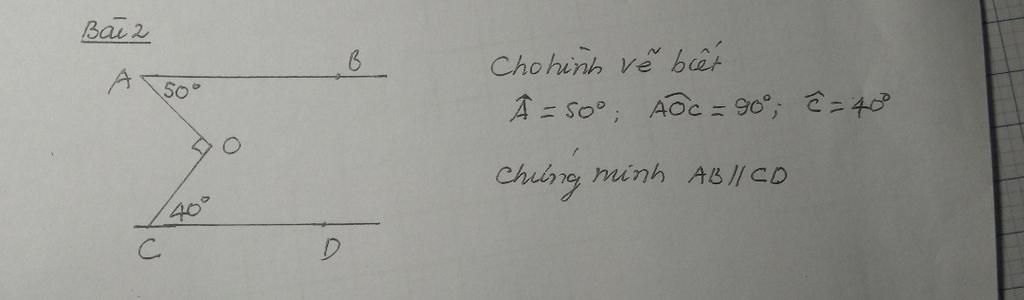 Bài 2
A
B
50°
O
40°
C
D
Cho hình vẽ biết
Â = 50°; AÔC = 90°; Ĉ = 40°
Chứng minh AB // CD